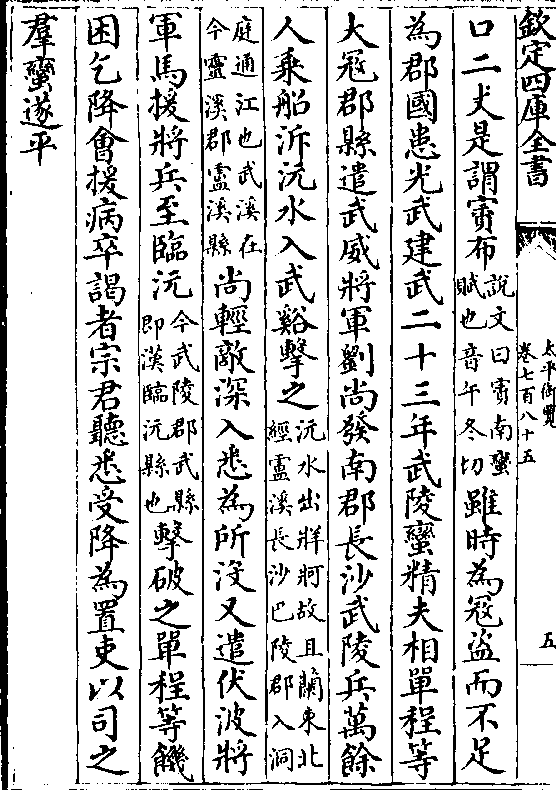 欽定四庫全書
太平御覽
卷七百八十五
五
口二丈是謂賨布說文曰賨南蠻賦也音午冬切雖時為冦盗而不足
為郡國患光武建武二十三年武陵蠻精夫相單程等
大冦郡縣遣武威將軍劉尚發南郡長沙武陵兵萬餘
人乘船泝沅水入武谿擊之沅水出牂牁故且蘭東北經靈溪長沙巴陵郡入洞
庭通江也武溪在今靈溪郡盧溪縣尚輕敵深入悉為所沒又遣伏波將
軍馬援將兵至臨沅今武陵郡武縣即漢臨沅縣也擊破之單程等饑
困乞降會援病卒謁者宗君聽悉受降為置吏以司之
羣蠻遂平